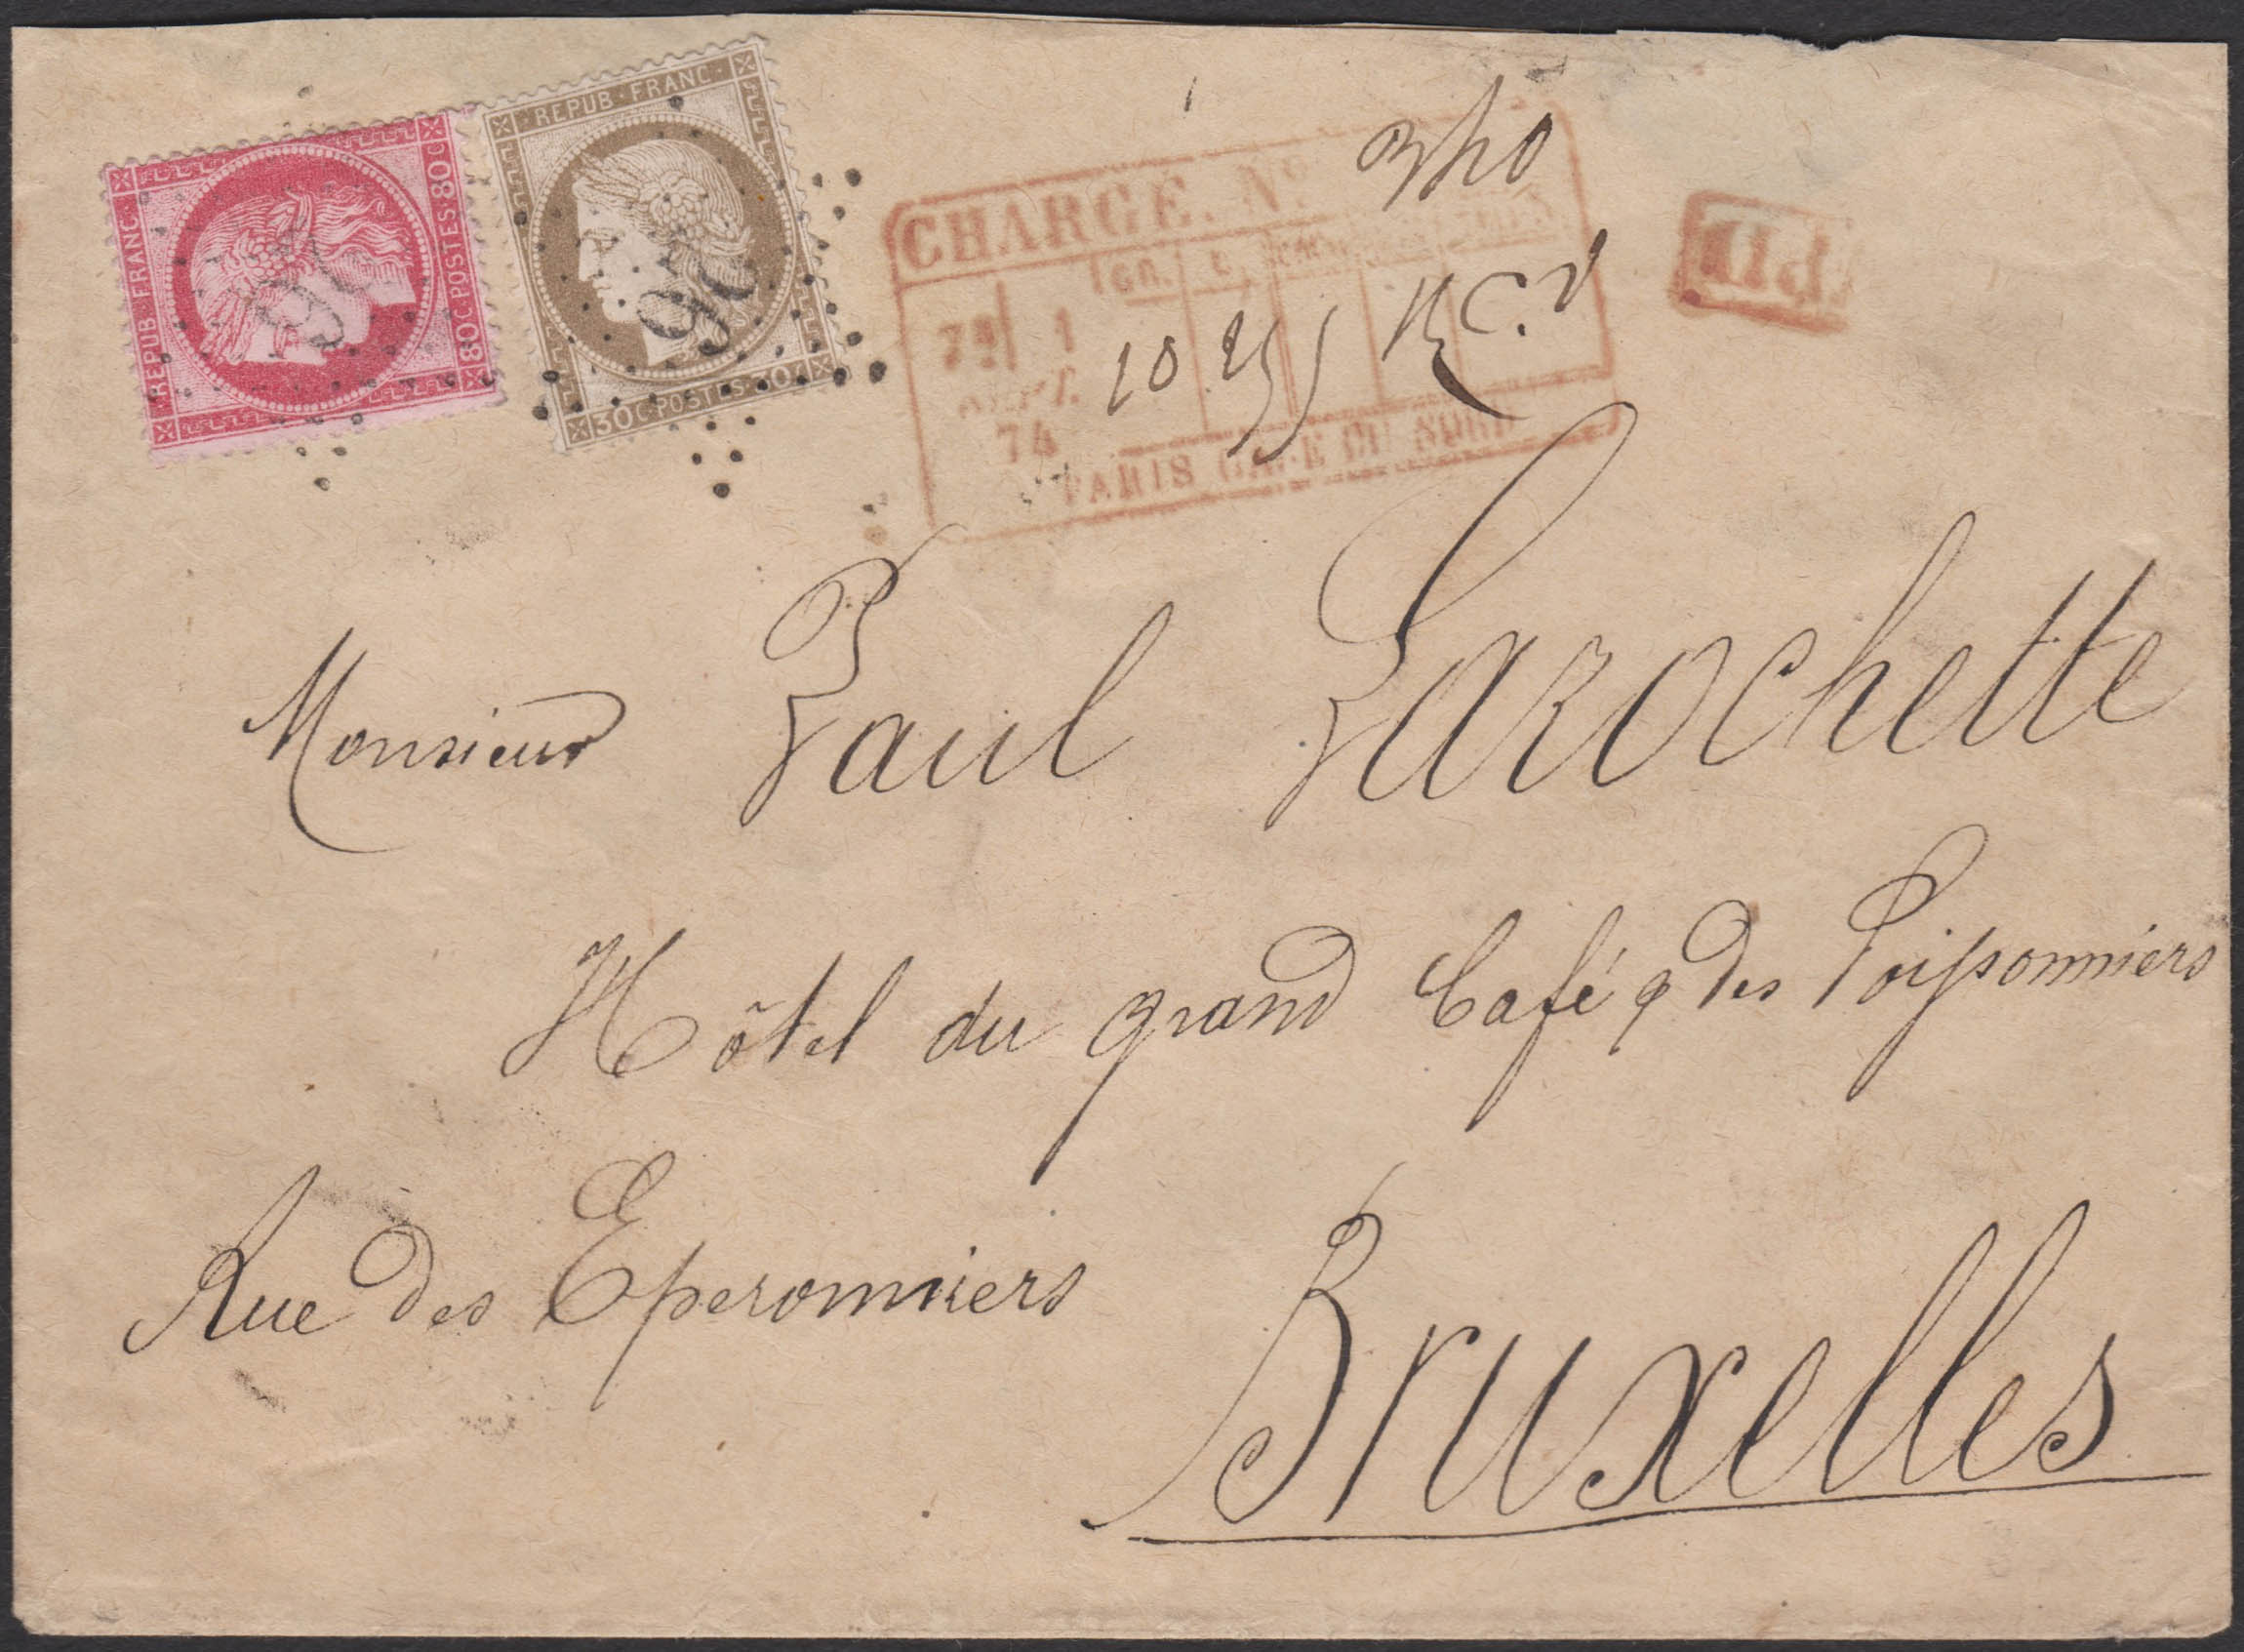 REPUB·FRANC·
80C·POSTES·80C
REPUB·FRANC·
30C·POSTES·30C
26
26
CHARGÉ. Nº
GR.
74
10
PARIS GARE DU NORD
PD
Monsieur Paul Larochette
Hôtel du grand Café & des Poissonniers
Rue des Eperonniers
Bruxelles